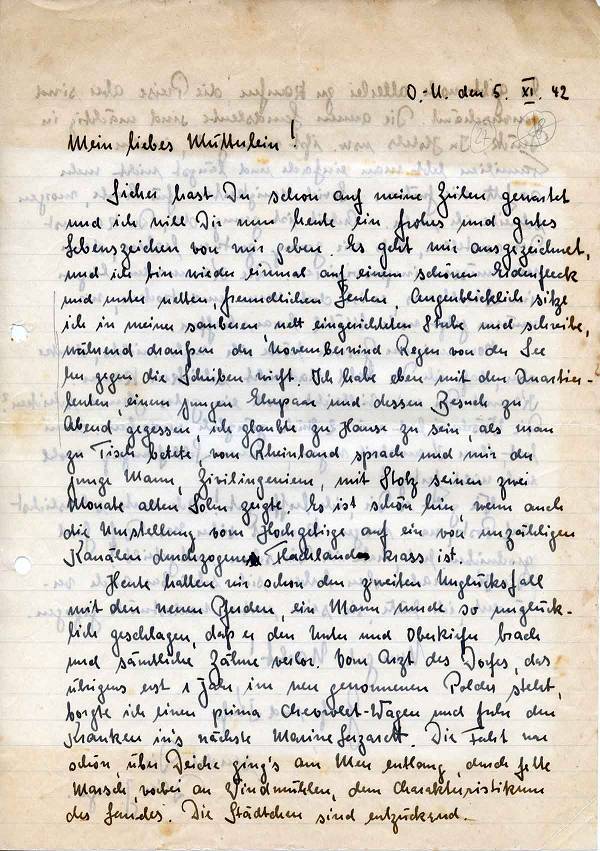 O.-U. den 5. XI. 42
Mein liebes Mutterlein!
Sicher hast Du schon auf meine Zeilen gewartet
und ich will Dir nun heute ein frohes und gutes
Lebenszeichen von mir geben. Es geht mir ausgezeichnet,
und ich bin wieder einmal auf einem schönen Erdenfleck
und unter netten, freundlichen Leuten. Augenblicklich sitze
ich in meiner sauberen, nett eingerichteten Stube und schreibe,
während draußen der Novemberwind Regen von der See
her gegen die Scheiben wirft. Ich habe eben mit den Quartier-
leuten, einem jungen Ehepaar und dessen Besuch zu
Abend gegessen, ich glaubte zu Hause zu sein, als man
zu Tisch betete, vom Rheinland sprach und mir der
junge Mann, Zivilingenieur, mit Stolz seinen zwei
Monate alten Sohn zeigte. Es ist schön hier, wenn auch
die Umstellung vom Hochgebirge auf ein von unzähligen
Kanälen durchzogenes Flachland krass ist.
Heute hatten wir schon den zweiten Unglücksfall
mit den neuen Pferden, ein Mann wurde so unglück-
lich geschlagen, daß er den Unter und Oberkiefer brach
und sämtliche Zähne verlor. Vom Arzt des Dorfes, das
übrigens erst 1 Jahr im neu gewonnenen Polder steht,
borgte ich einen prima Chevrolet-Wagen und fuhr den
Kranken in's nächste Marine Lazarett. Die Fahrt war
schön, über Deiche ging's am Meer entlang, durch fette
Marsch, vorbei an Windmühlen, dem Charakteristikum
des Landes. Die Städtchen sind entzückend.